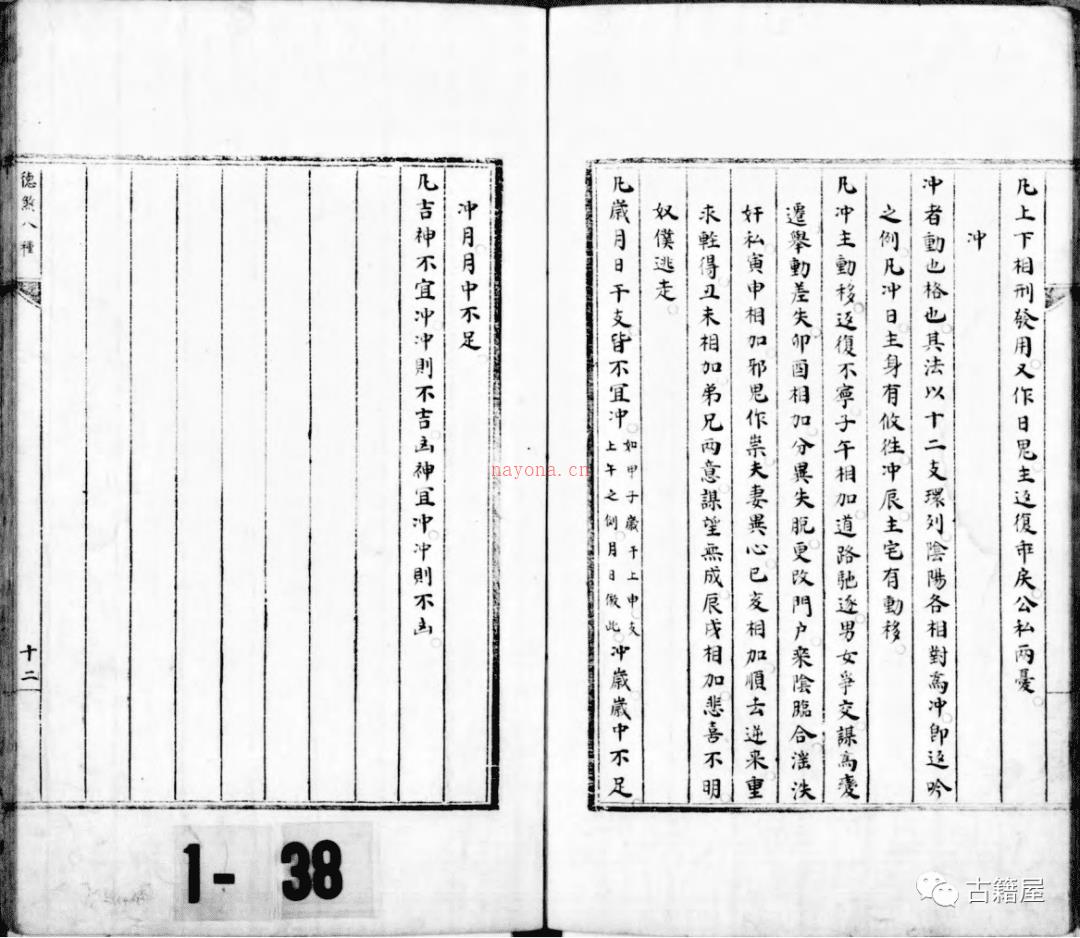 凡上下相刑發用又作日鬼主返復乖戾公私兩憂
冲
冲者動也格也其法以十二支環列陰陽各相對為冲即返吟
之例凡冲日主身有攸往冲辰主宅有動移
凡冲主動移返復不寧子午相加道路馳逐男女爭交謀為變
遷舉動差失卯酉相加分異失脫更改門户来陰臨合滛泆
奸私寅申相加邪鬼作祟夫妻異心巳亥相加順去逆来重
求輕得丑未相加弟兄兩意謀望無成辰戌相加悲喜不明
奴僕逃走
凡歲月日干支皆不宜冲如甲子歲干上申支上午之例月日倣此冲歲歲中不足
冲月月中不足
凡吉神不宜冲冲則不吉凶神宜冲冲則不凶
德煞八種
十二
1- 38
nayona.cn
古籍屋